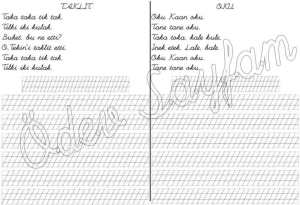 TAKLİT
Taka taka tik tak.
Tilki iki kulak.
Buket, bu ne etti?
O, Tekin'i taklit etti.
Taka taka tik tak.
Tilki iki kulak.
OKU
Oku Kaan oku.
Tane tane oku.
Taka toka, kale kule.
İnek etek, Lale, lale.
Oku Kaan oku.
Tane tane oku.
Ödev Sayfam